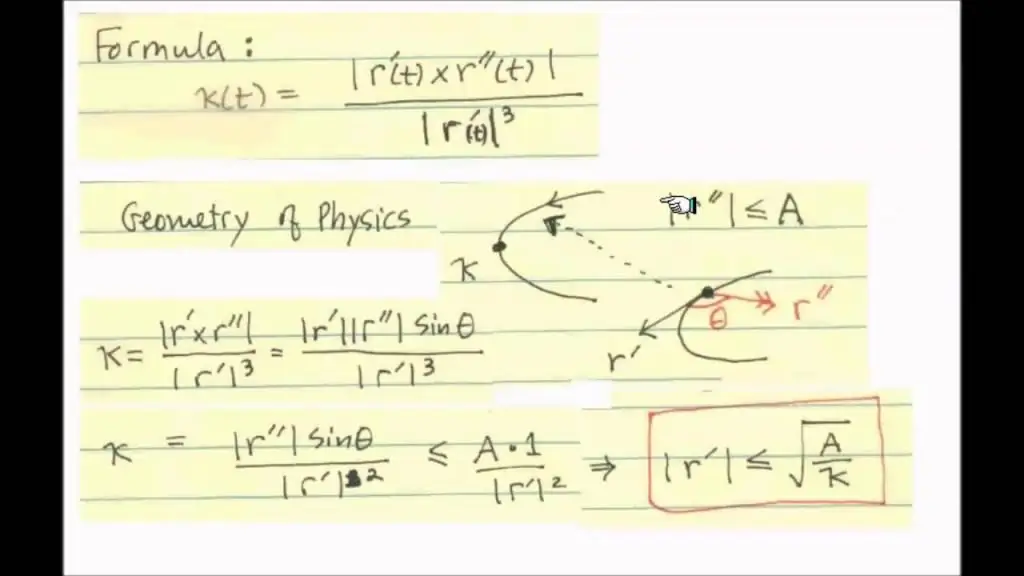 Formula :
κ(t) = |r′(t) × r″(t)| / |r′(t)|³
Geometry of Physics
|r″| ≤ A
κ
θ
r″
r′
κ = |r′×r″| / |r′|³ = |r′||r″| sinθ / |r′|³
κ = |r″| sinθ / |r′|² ≤ A·1 / |r′|² ⇒ |r′| ≤ √(A/κ)